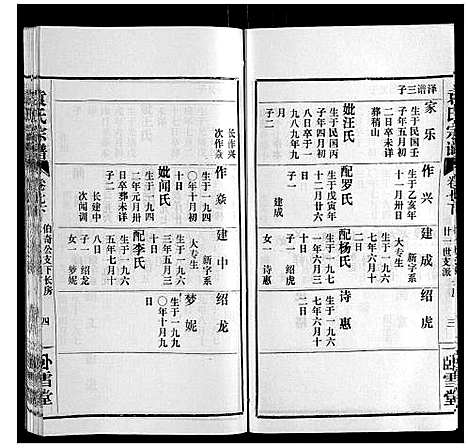 袁氏宗譜
卷七下
廿一世支派
三
卧雪堂
泽谱三子
家乐
生于民国壬
子年五月初
二日卒未详
葬稍山
妣汪氏
生于民国丙
子年四月初
八卒于一
九八九年九
月
子二
长作兴
次作焱
作兴
生于乙亥年
十一月卅日
配罗氏
生于戊寅年
十月初二日
子一
建成
建成
新字系
大专生
生于一九六
一年六月三
日
配杨氏
生于一九六
七年六月十
二日
子一 绍虎
女一 诗惠
绍虎
诗惠
作焱
生于一九四
〇年十月初
十日
妣闻氏
生于一九四
三年五月三
十日
二年元月卅
日卒葬未详
子二
长建中
次闻训
建中
新字系
大专生
生于一九六
三年九月十
日
配李氏
生于一九六
五年七月十
八日
子一 绍龙
女一 梦妮
绍龙
梦妮
生于一九九
〇年十月九
日
袁氏宗譜
卷七下
伯奇公支下长房
四
卧雪堂